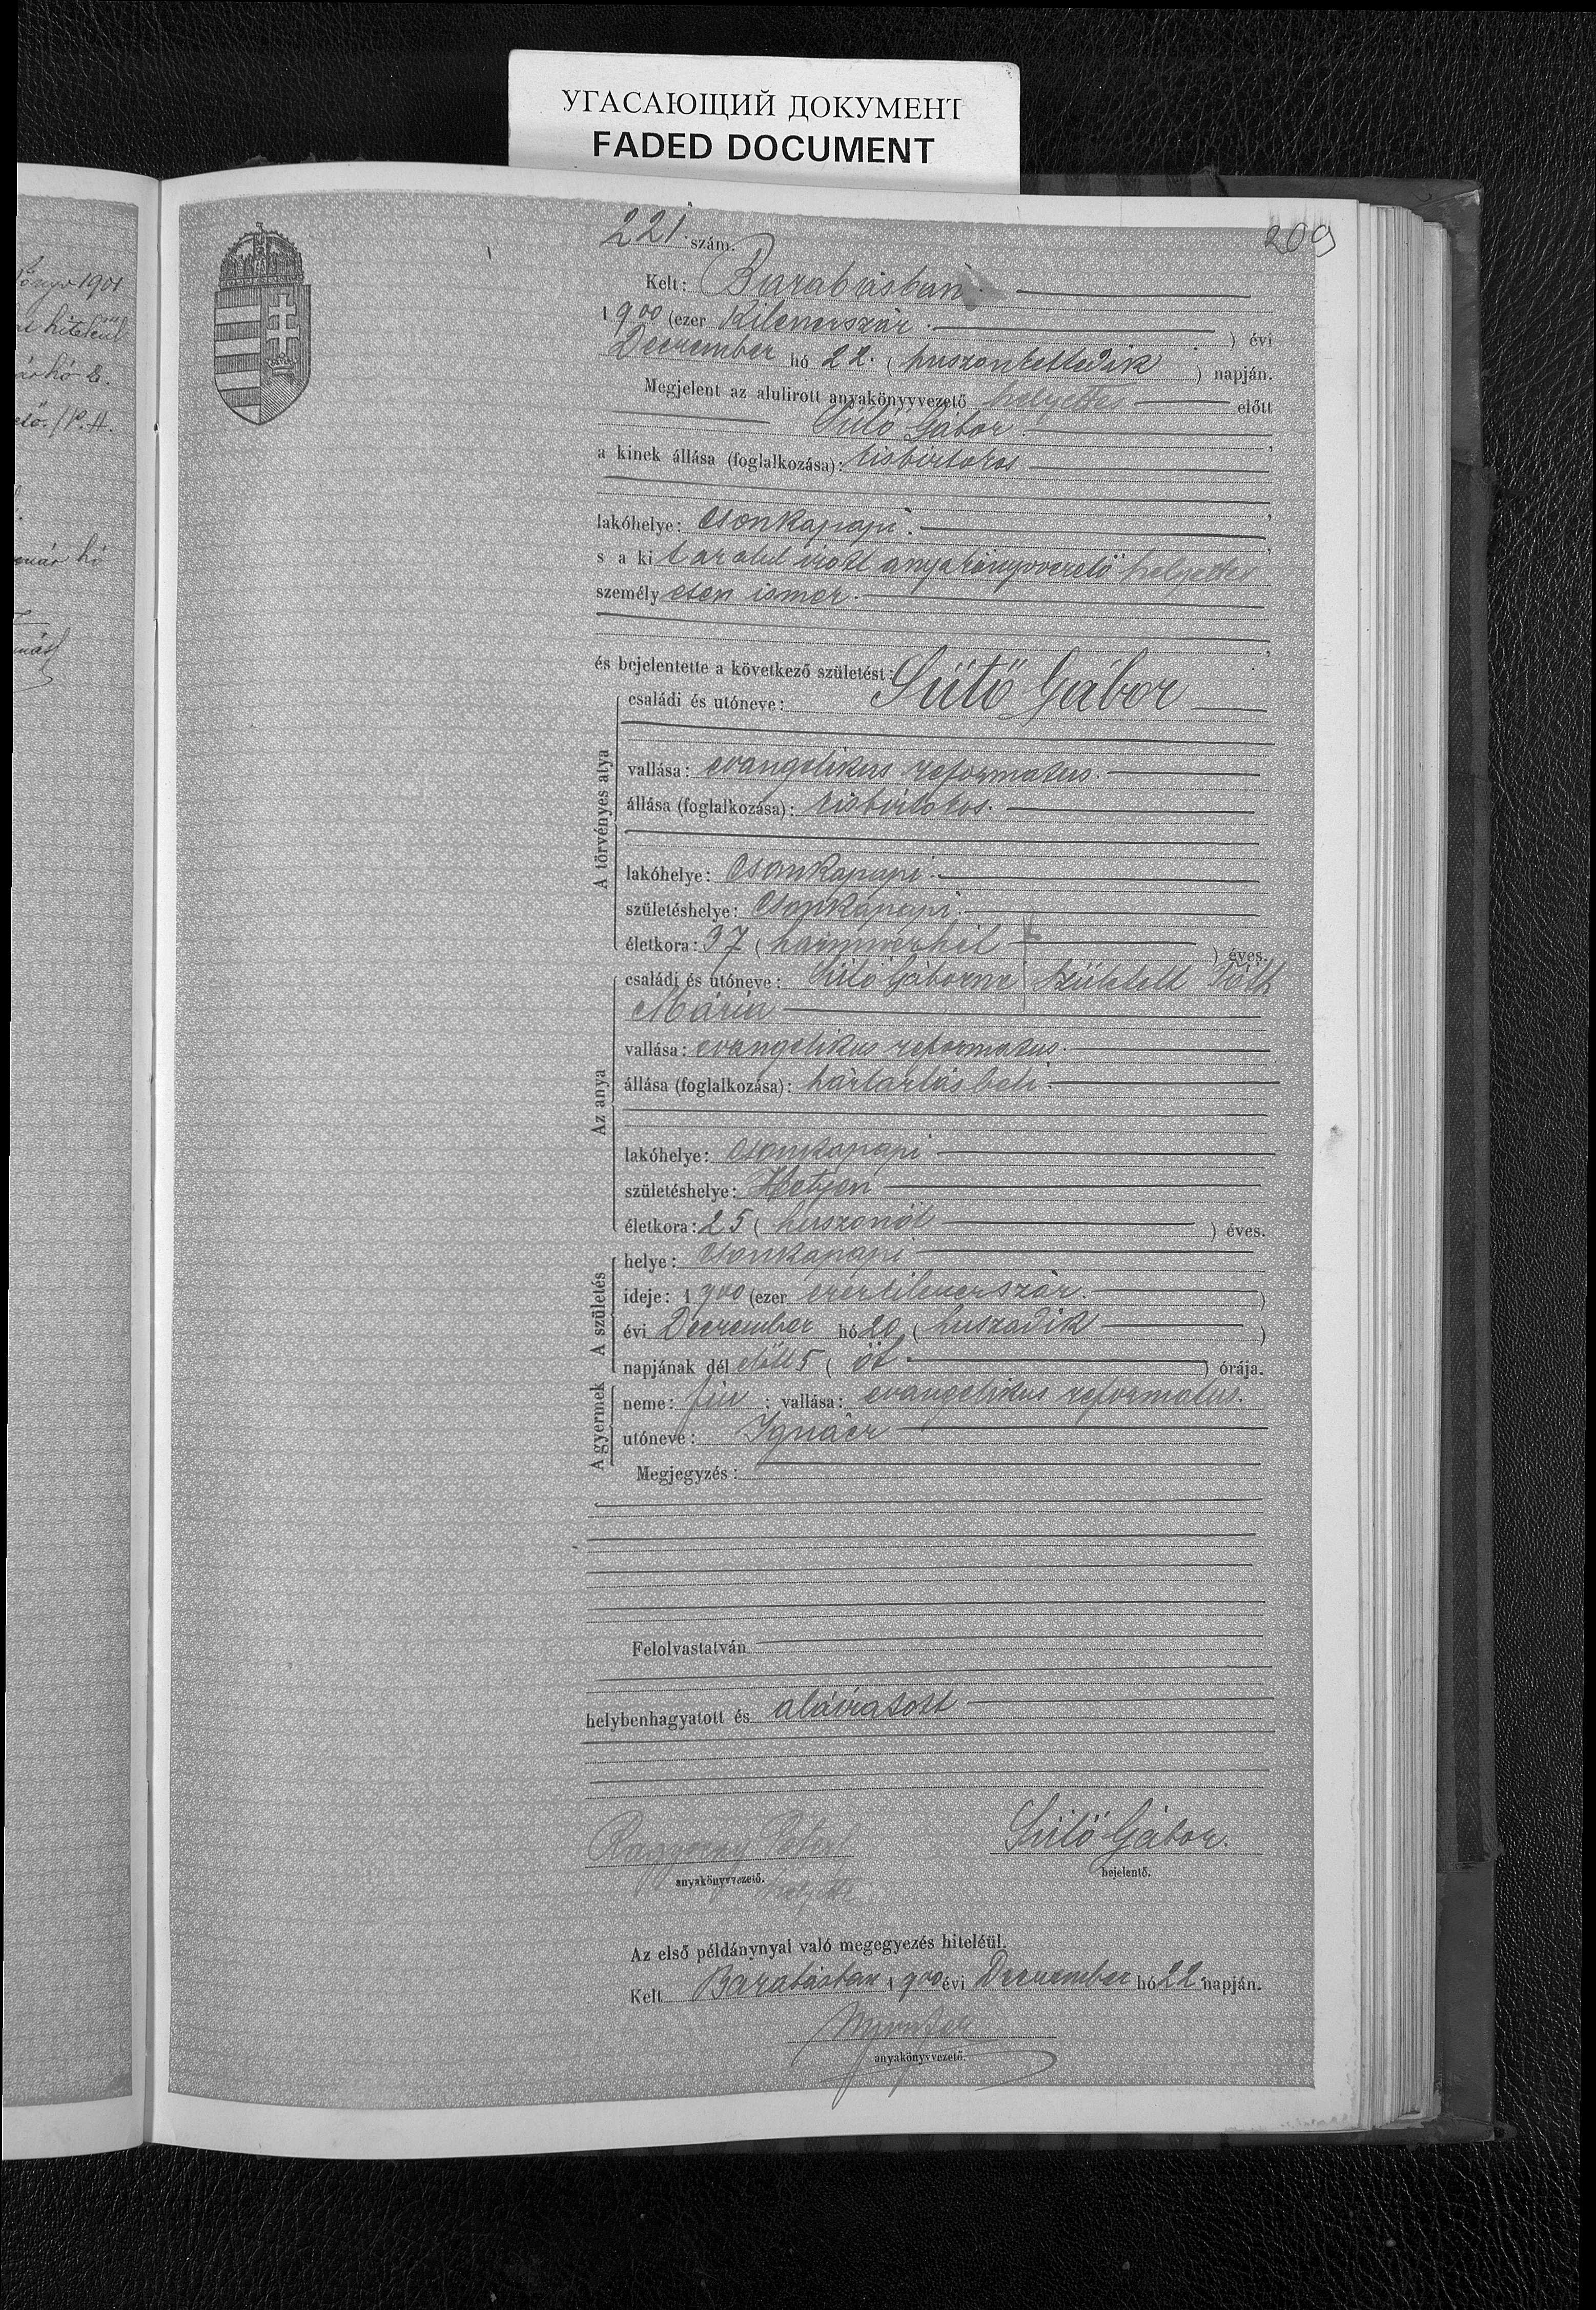 УГАСАЮЩИЙ ДОКУМЕНТ
FADED DOCUMENT
209
221. szám.
Kelt: Barabásban
1900 (ezer Kilenczszáz.) évi
Deczember hó 22. (huszonkettedik) napján.
Megjelent az alulirott anyakönyvvezető helyettes előtt
Sütő Gábor
a kinek állása (foglalkozása): kisbirtokos
lakóhelye: Csonkapapi.
s a kit az alul irott anyakönyvvezető helyettes
személyesen ismer.
és bejelentette a következő születést:
A törvényes atya
családi és utóneve: Sütő Gábor
vallása: evangelikus reformatus.
állása (foglalkozása): kisbirtokos.
lakóhelye: Csonkapapi.
születéshelye: Csonkapapi.
életkora: 37 (harminczhét) éves.
Az anya
családi és utóneve: Sütő Gáborné született Tóth
Mária
vallása: evangelikus reformatus.
állása (foglalkozása): háztartásbeli.
lakóhelye: Csonkapapi
születéshelye: Hetyen
életkora: 25 (huszonöt) éves.
A születés
helye: Csonkapapi
ideje: 1900 (ezer ezerkilenczszáz.)
évi Deczember hó 20 (huszadik)
napjának dél előtt 5 (öt) órája.
A gyermek
neme: fiu; vallása: evangelikus reformatus.
utóneve: Ignácz
Megjegyzés:
Felolvastatván
helybenhagyatott és aláiratott
Sütő Gábor.
anyakönyvvezető. bejelentő.
helyettes
Az első példánynyal való megegyezés hiteléül.
Kelt Barabásban 1900 évi Deczember hó 22 napján.
anyakönyvvezető.